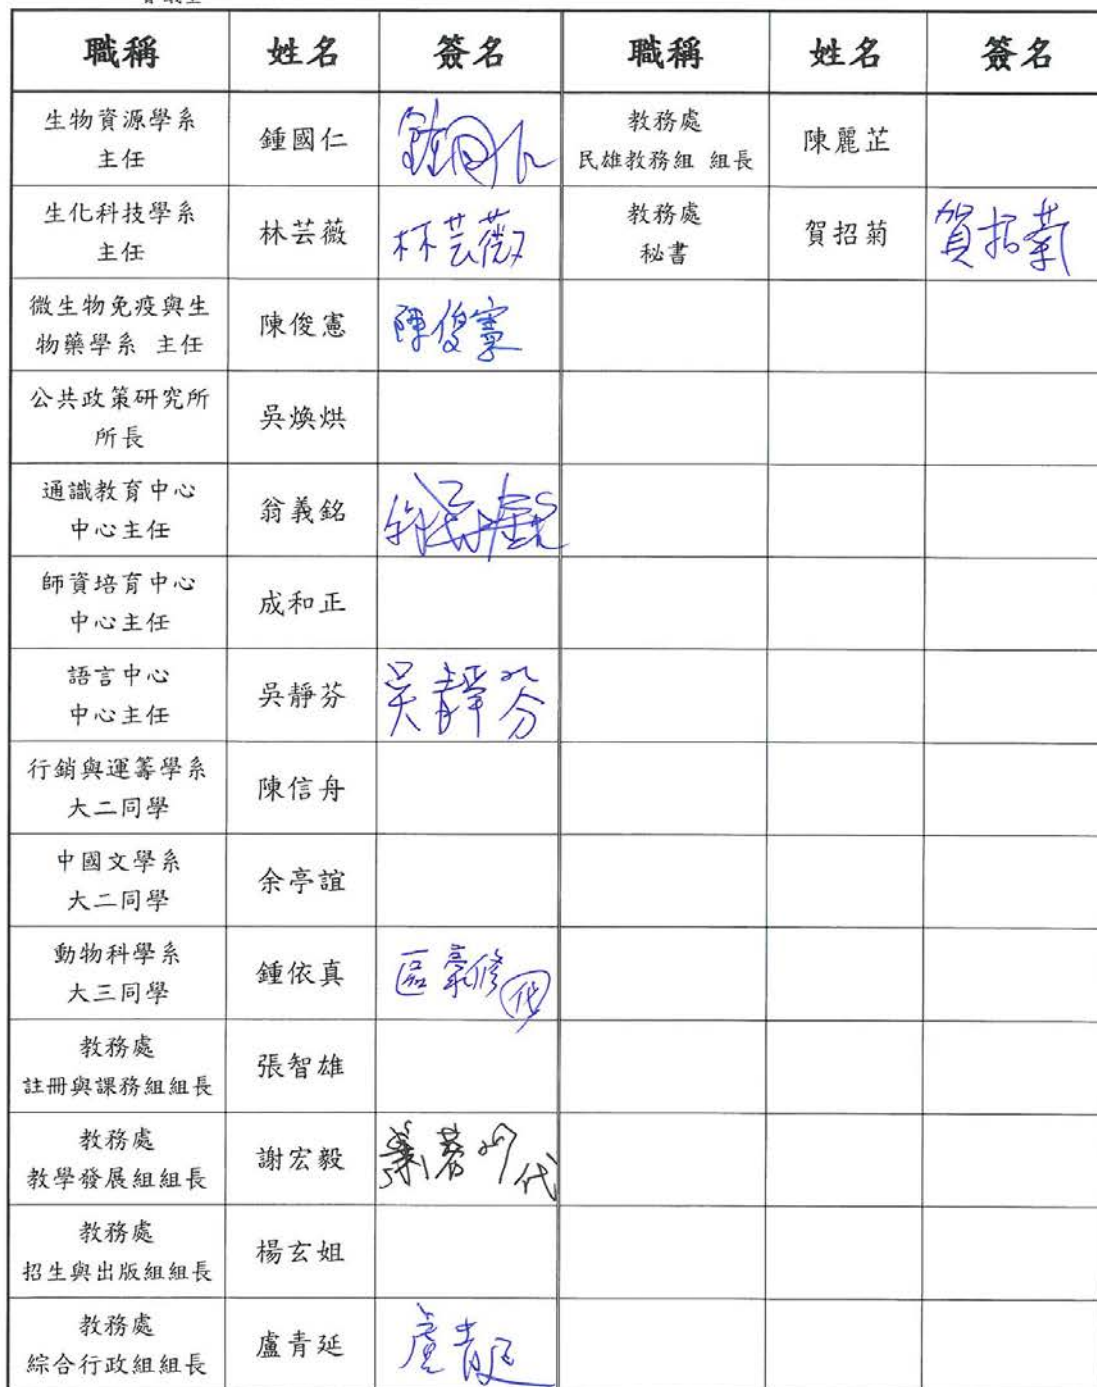 職稱 姓名 簽名 職稱 姓名 簽名
生物資源學系
主任
鍾國仁
鍾國仁
教務處
民雄教務組 組長
陳麗芷
生化科技學系
主任
林芸薇
林芸薇
教務處
秘書
賀招菊
賀招菊
微生物免疫與生
物藥學系 主任
陳俊憲
陳俊憲
公共政策研究所
所長
吳煥烘
通識教育中心
中心主任
翁義銘
翁義銘
師資培育中心
中心主任
成和正
語言中心
中心主任
吳靜芬
吳靜芬
行銷與運籌學系
大二同學
陳信舟
中國文學系
大二同學
余亭誼
動物科學系
大三同學
鍾依真
區豪修代
教務處
註冊與課務組組長
張智雄
教務處
教學發展組組長
謝宏毅
代
教務處
招生與出版組組長
楊玄姐
教務處
綜合行政組組長
盧青延
盧青延